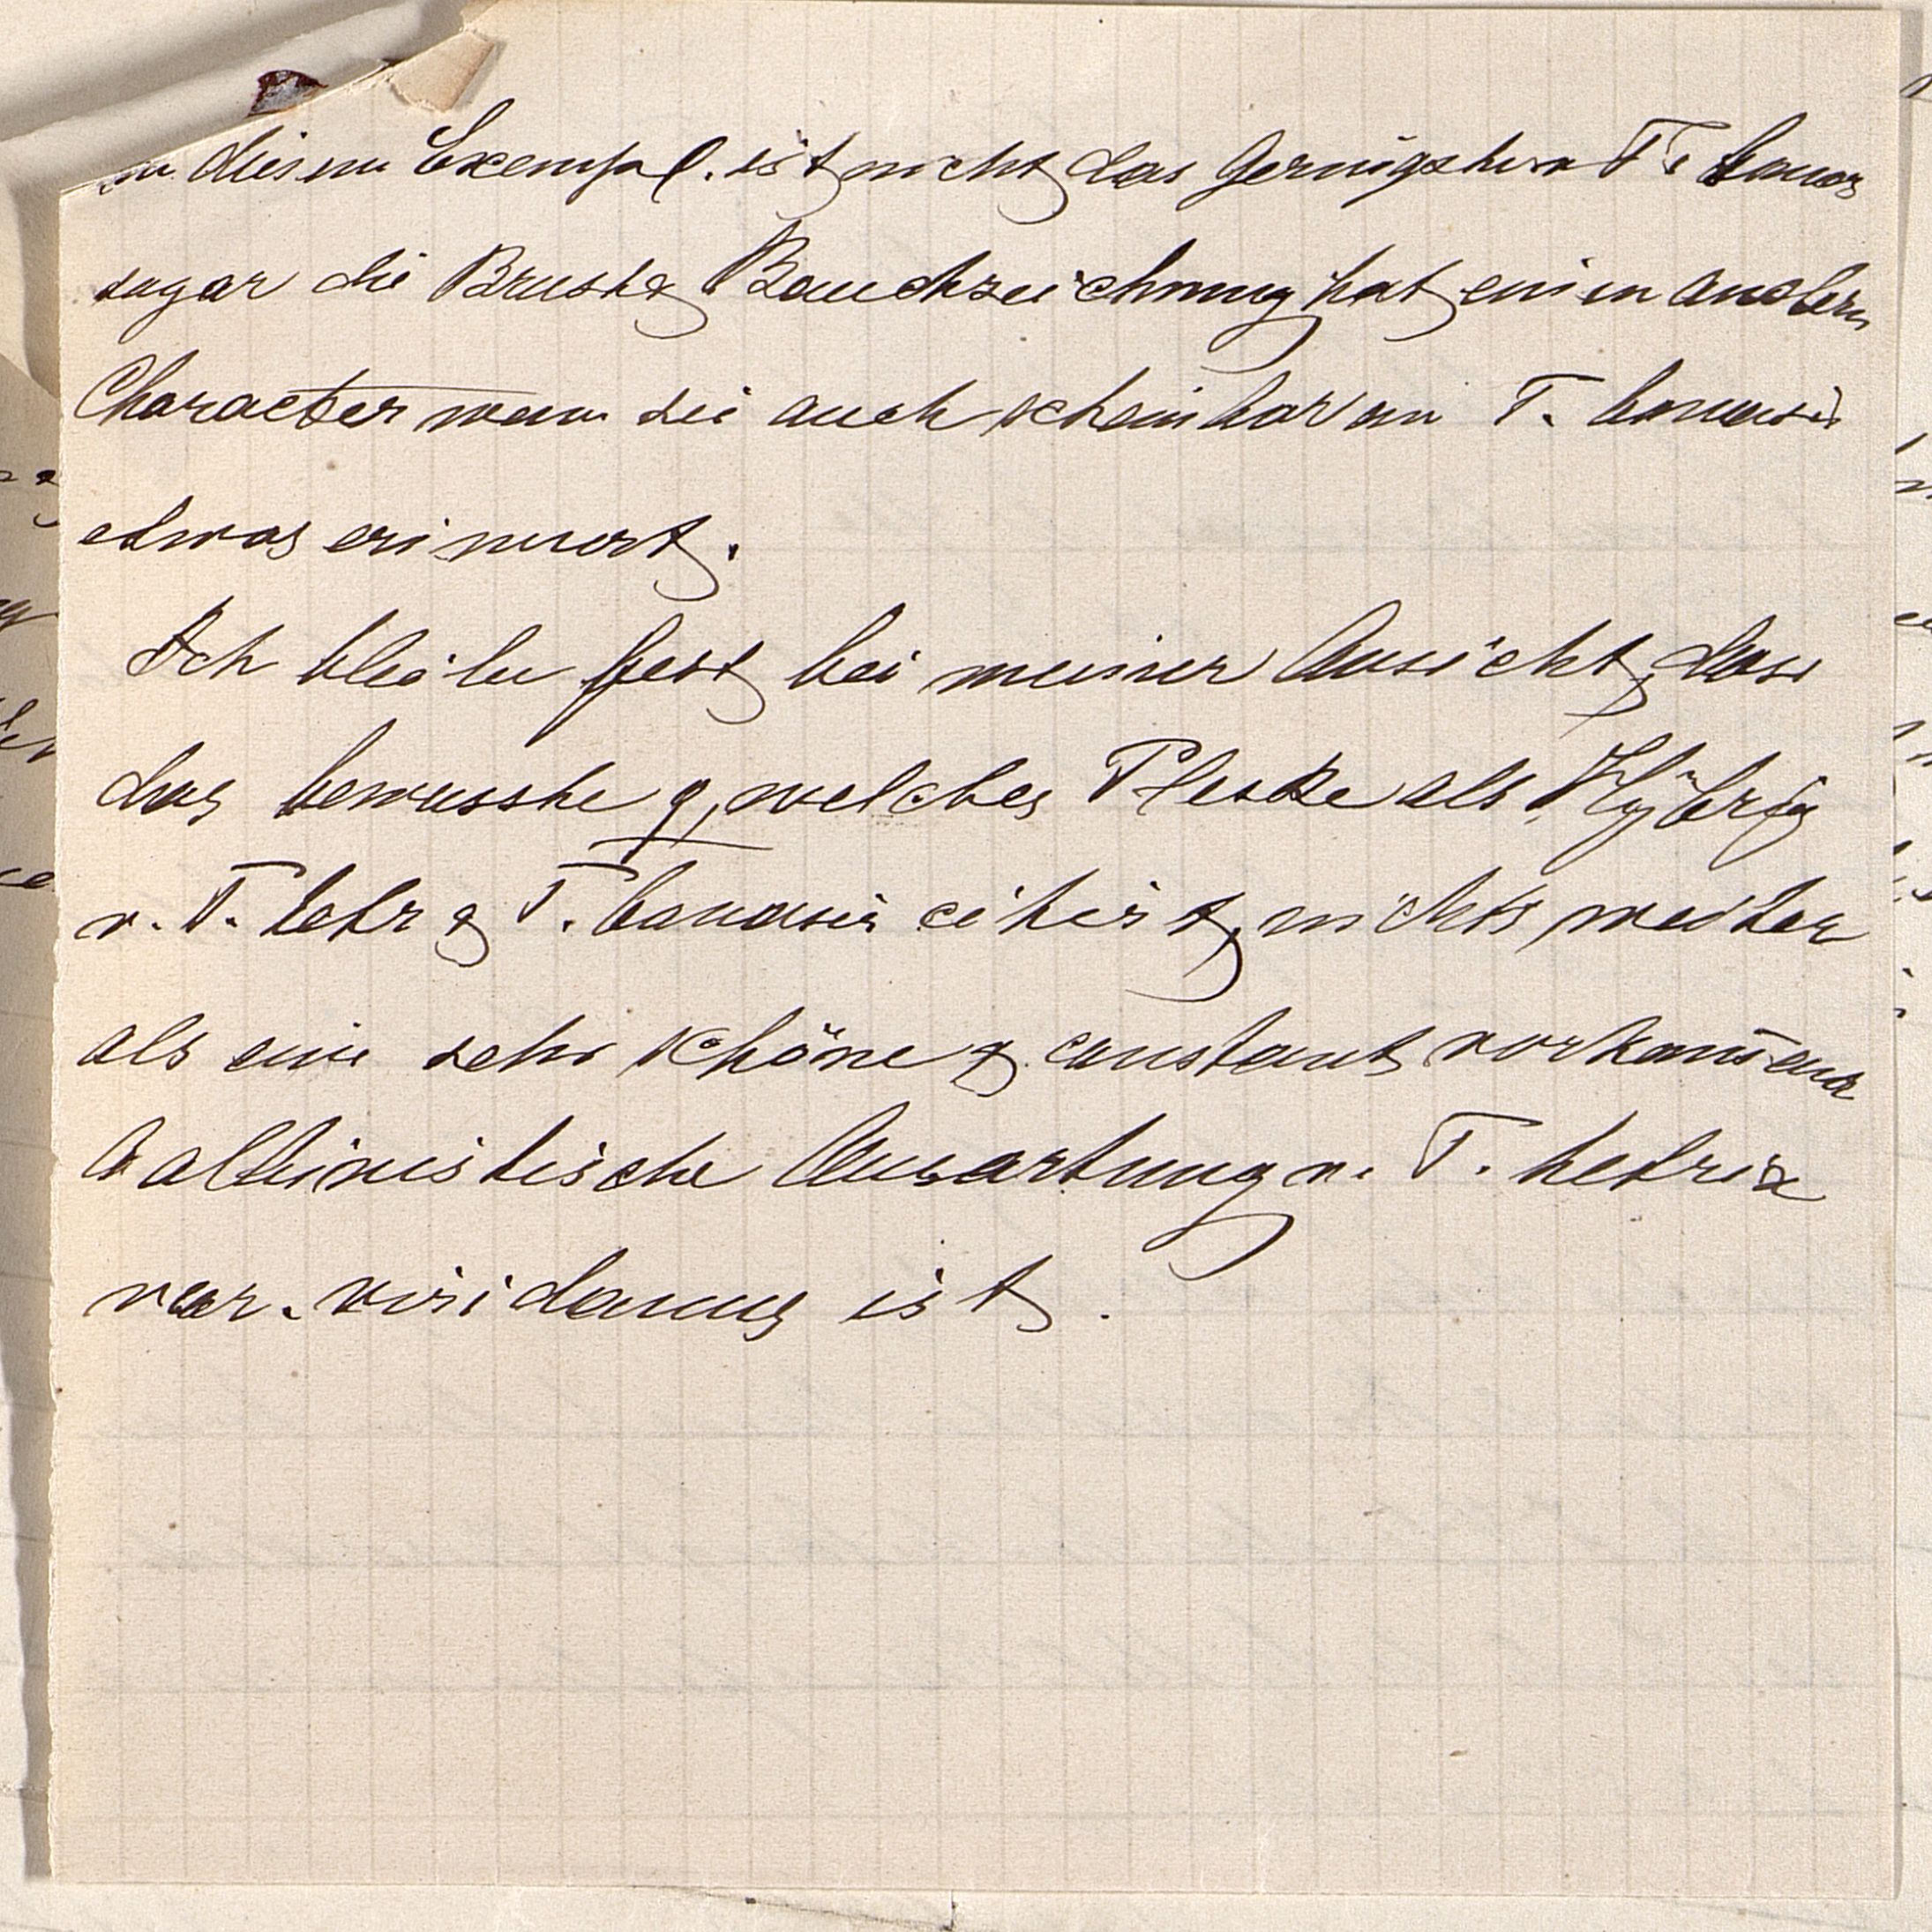 an diesem Exempl. ist nicht das Geringste v. T. bonas
sogar die Brust & Bauchzeichnung hat einen andern
Character wenn sie auch scheinbar an T. bonasia
etwas erinnert.
Ich bleibe fest bei meiner Ansicht, dass
das bewusste ♀, welches Pleske als Hybrid
v. T. tetr & T. bonasia citirt, nichts weiter
als eine sehr schöne & constant vorkom̄end
albinistische Ausartung v. T. tetrix
var. viridanus ist.